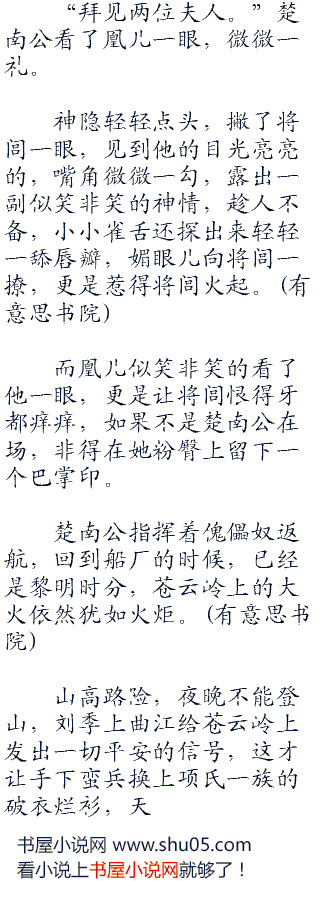 “拜见两位夫人。”楚
南公看了凰儿一眼，微微一
礼。
神隐轻轻点头，撇了将
闾一眼，见到他的目光亮亮
的，嘴角微微一勾，露出一
副似笑非笑的神情，趁人不
备，小小雀舌还探出来轻轻
一舔唇瓣，媚眼儿向将闾一
撩，更是惹得将闾火起。(有
意思书院)
而凰儿似笑非笑的看了
他一眼，更是让将闾恨得牙
都痒痒，如果不是楚南公在
场，非得在她粉臀上留下一
个巴掌印。
楚南公指挥着傀儡奴返
航，回到船厂的时候，已经
是黎明时分，苍云岭上的大
火依然犹如火炬。(有意思书
院)
山高路险，夜晚不能登
山，刘季上曲江给苍云岭上
发出一切平安的信号，这才
让手下蛮兵换上项氏一族的
破衣烂衫，天
书屋小说网 www.shu05.com
看小说上书屋小说网就够了！